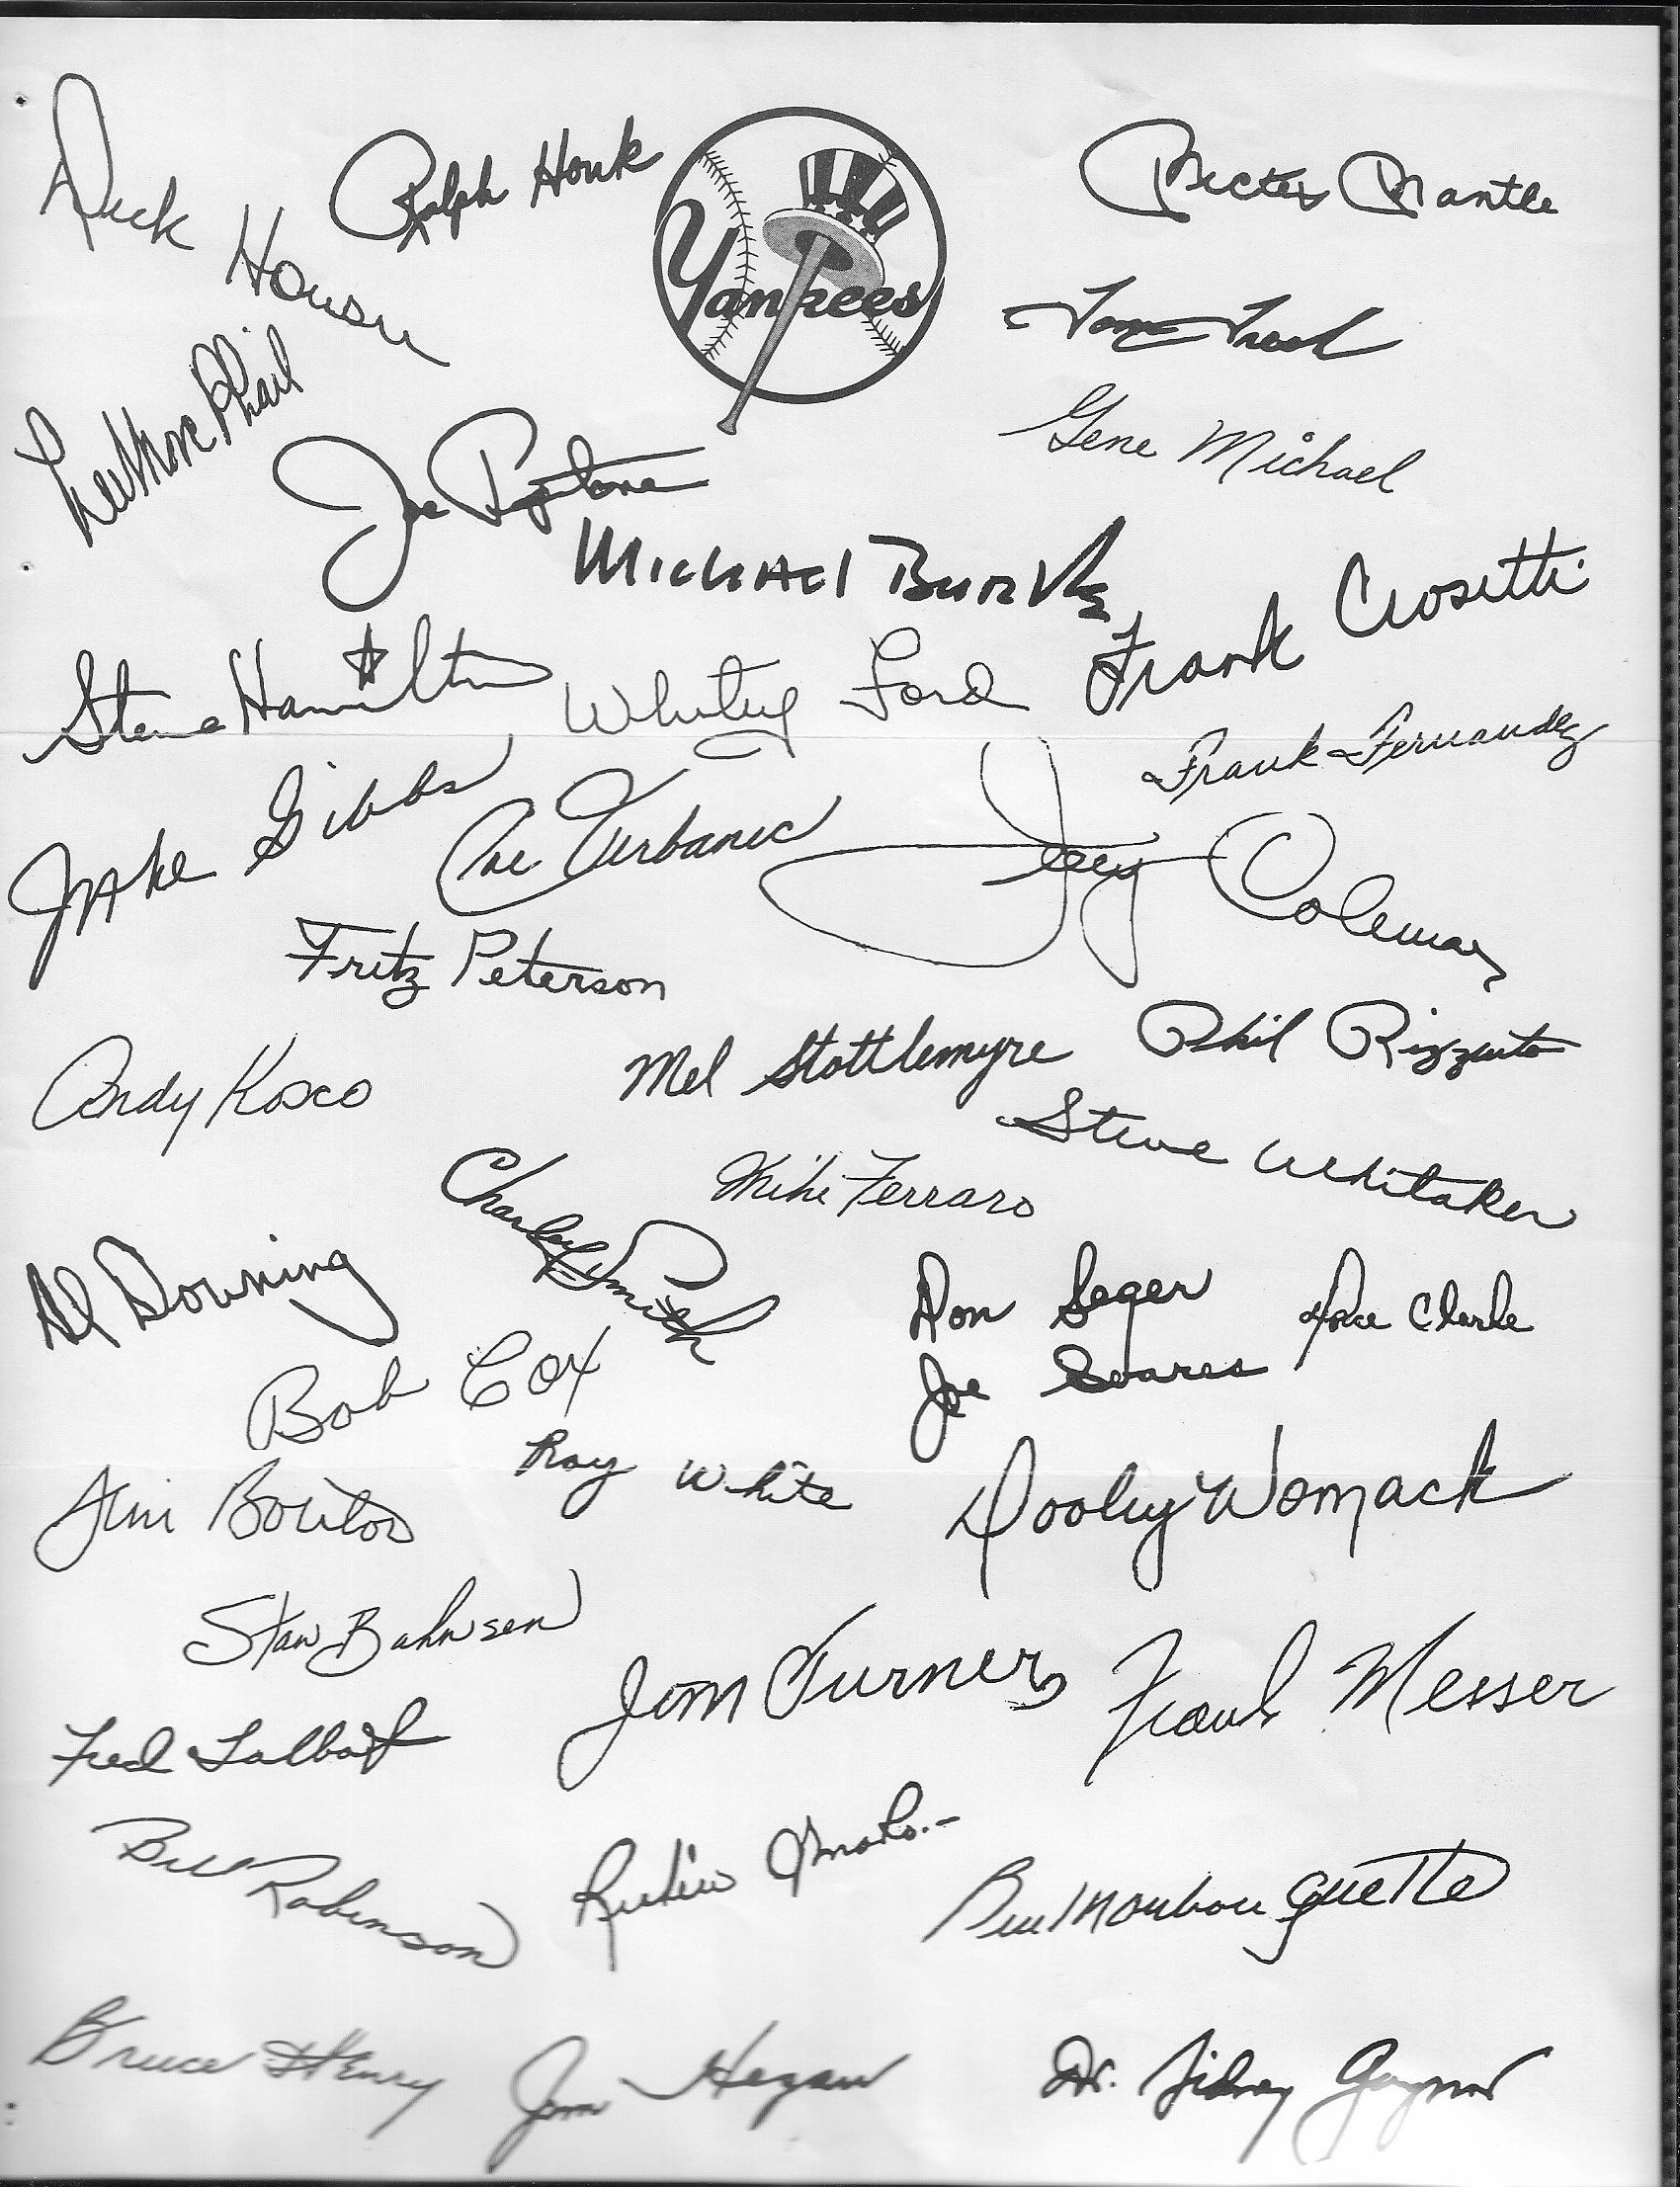 Dick Howser
Ralph Houk
Yankees
Mickey Mantle
Tom Tresh
Lee MacPhail
Gene Michael
Joe Pepitone
Michael Burke
Frank Crosetti
Steve Hamilton
Whitey Ford
Frank Fernandez
Jake Gibbs
Joe Verbanic
Jerry Coleman
Fritz Peterson
Andy Kosco
Mel Stottlemyre
Phil Rizzuto
Steve Whitaker
Charley Smith
Mike Ferraro
Al Downing
Don Seger
Joe Soares
Horace Clarke
Bob Cox
Roy White
Dooley Womack
Jim Bouton
Stan Bahnsen
Jim Turner
Frank Messer
Fred Talbot
Bill Robinson
Ruben Amaro
Bill Monbouquette
Bruce Henry
Jim Hegan
Dr. Sidney Gaynor